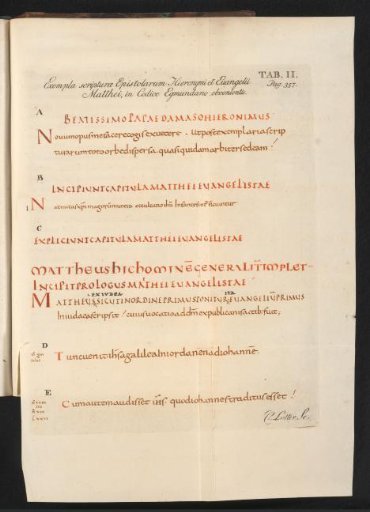 TAB. II.
Pag. 357.
Exempla scripturæ Epistolarum Hieronymi et Euangelii
Matthei, in Codice Egmundano obvenientis.
A
BEATISSIMO PAPAE DAMASO HIERONIMUS
Novum opus me facere cogis ex vetere. Ut post exemplaria scrip
turarum toto orbe dispersa. quasi quidam arbiter sedeam!
B
INCIPIUNT CAPITULA MATTHEI EUANGELISTAE
I N
C
EXPLICIUNT CAPITULA MATTHEI EUANGELISTAE
MATTHEUS HIC HOMINĒ GENERALIT IMPLET
INCIPIT PROLOGUS MATHEI EUANGELISTAE
EX IUDEA
MATTHEUS SICUT IN ORDINE PRIMUS PONITUR EUANGELIUM PRIMUS
In iudea scripsit! cuius vocatio ad dm ex publicanis actib: fuit,
D
Tunc venit ihs a galilea in iordanen ad iohanne
E
Cum autem audisset ihs quod iohannes traditus esset!